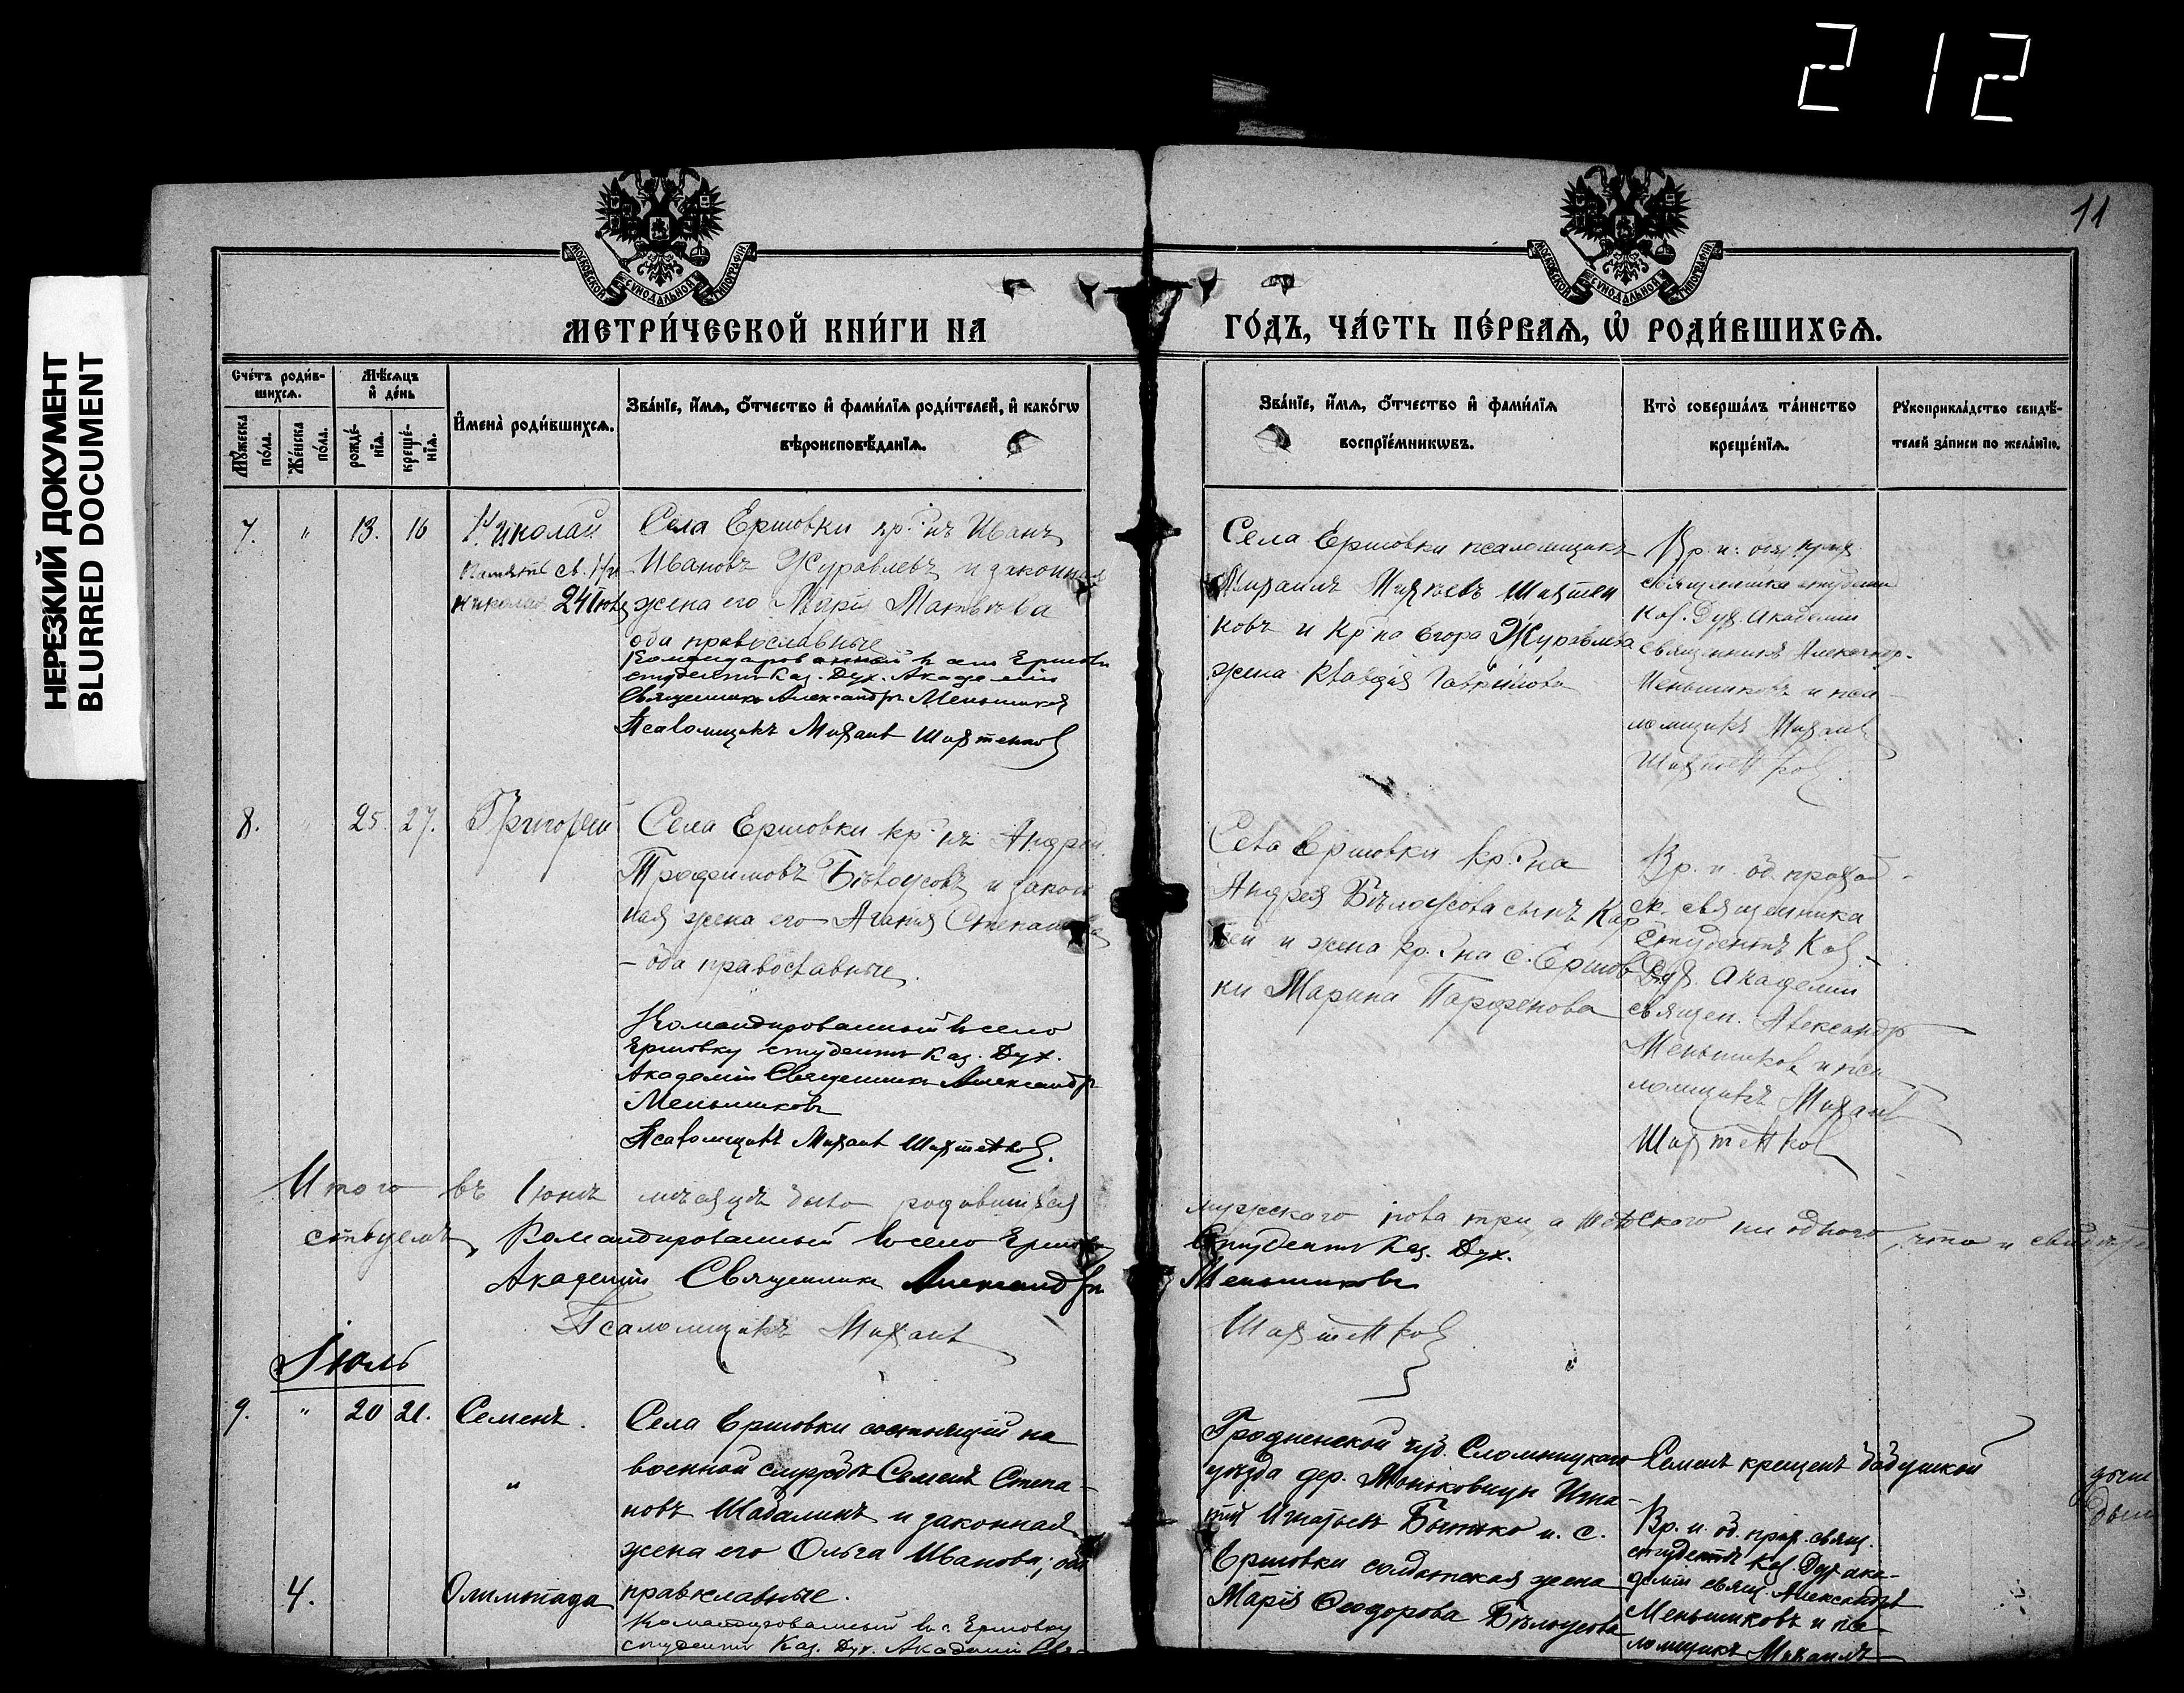 212
НЕРЕЗКИЙ ДОКУМЕНТ
BLURRED DOCUMENT
11
МОСКОВСКОЙ СѴНОДАЛЬНОЙ ТИПОГРАФІИ
МОСКОВСКОЙ СѴНОДАЛЬНОЙ ТИПОГРАФІИ
МЕТРИ́ЧЕСКОЙ КНИ́ГИ НА
ГО́ДЪ, ЧА́СТЬ ПЕ́РВАѦ, Ѡ҆ РОДИ́ВШИХСѦ.
Сче́тъ роди́в-
шихсѧ.
Мѣ́сѧцъ
и҆ де́нь
Мꙋ́жеска по́ла.
Же́нска по́ла.
рожде́-
нїѧ.
креще́-
нїѧ.
И҆мена̀ роди́вшихсѧ.
Зва́нїе, и҆́мѧ, ѻ҆́тчество и҆ фами́лїѧ роди́телей, и҆ како́гѡ
вѣроисповѣ́данїѧ.
Зва́нїе, и҆́мѧ, ѻ҆́тчество и҆ фами́лїѧ
воспрїе́мникѡвъ.
Кто̀ соверша́лъ та́инство
креще́нїѧ.
Рꙋкоприкла́дство свидѣ́-
телей за́писи по жела́нїю.
7. " 13. 16 Николай
Села Ершовки кр-нъ Иванъ
Ивановъ Журавлевъ и законная
жена его Марія Матвѣева
оба православные
Командированный в село Ершовку
студентъ Каз. Дух. Академіи
Священникъ Александръ Меньшиковъ
Псаломщикъ Михаилъ
Села Ершовки псаломщикъ
Михаилъ
ковъ и кр-на Егора Журавлева
жена Клавдія Гаврилова
Вр. и.
священника студентъ
Каз. Дух. Академіи
священникъ Александръ
Меньшиковъ и пса-
ломщикъ Михаилъ
8. 25 27. Григорій
Села Ершовки кр-нъ Андрей
Трофимовъ Бѣлоусовъ и закон
ная жена его Агапія Степанова
оба православные.
Командированный в село
Ершовку студентъ Каз. Дух.
Академіи Священникъ Александръ
Меньшиковъ
Псаломщикъ Михаилъ
Села Ершовки кр-на
Андрея Бѣлоусова сынъ
и жена кр-на с. Ершов
ки Марина Парфенова
Вр. и. об. приход-
ск. священника
студентъ Каз.
Дух. Академіи
священ. Александръ
Меньшиковъ и пса
ломщикъ Михаилъ
Итого въ Іюнѣ мѣсяцѣ было родившихся
мужского пола три, а женского ни одного, что и свидѣтель
ствуемъ, Командированный в село Ершовку
Студентъ Каз. Дух.
Академіи Священникъ Александръ
Меньшиковъ
Псаломщикъ Михаилъ
Іюль
9. " 20 21. Семенъ.
Села Ершовки состоящій на
военной службѣ Семенъ Степа-
новъ Шабалинъ и законная
жена его Ольга Иванова, оба
православные.
4. Олимпіада
Командированный в с. Ершовку
студентъ Каз. Дух. Академіи Свя-
Гродненской губ. Слонимскаго
уѣзда дер. Игна-
тій Игнатьевъ и с.
Ершовки солдатская жена
Марія Ѳеодорова Бѣлоусова
Семенъ крещенъ бабушкой
Вр. и. об. прих. свящ.
студентъ Каз. Дух ака-
деміи свящ. Александръ
Меньшиковъ и пса-
ломщикъ Михаилъ